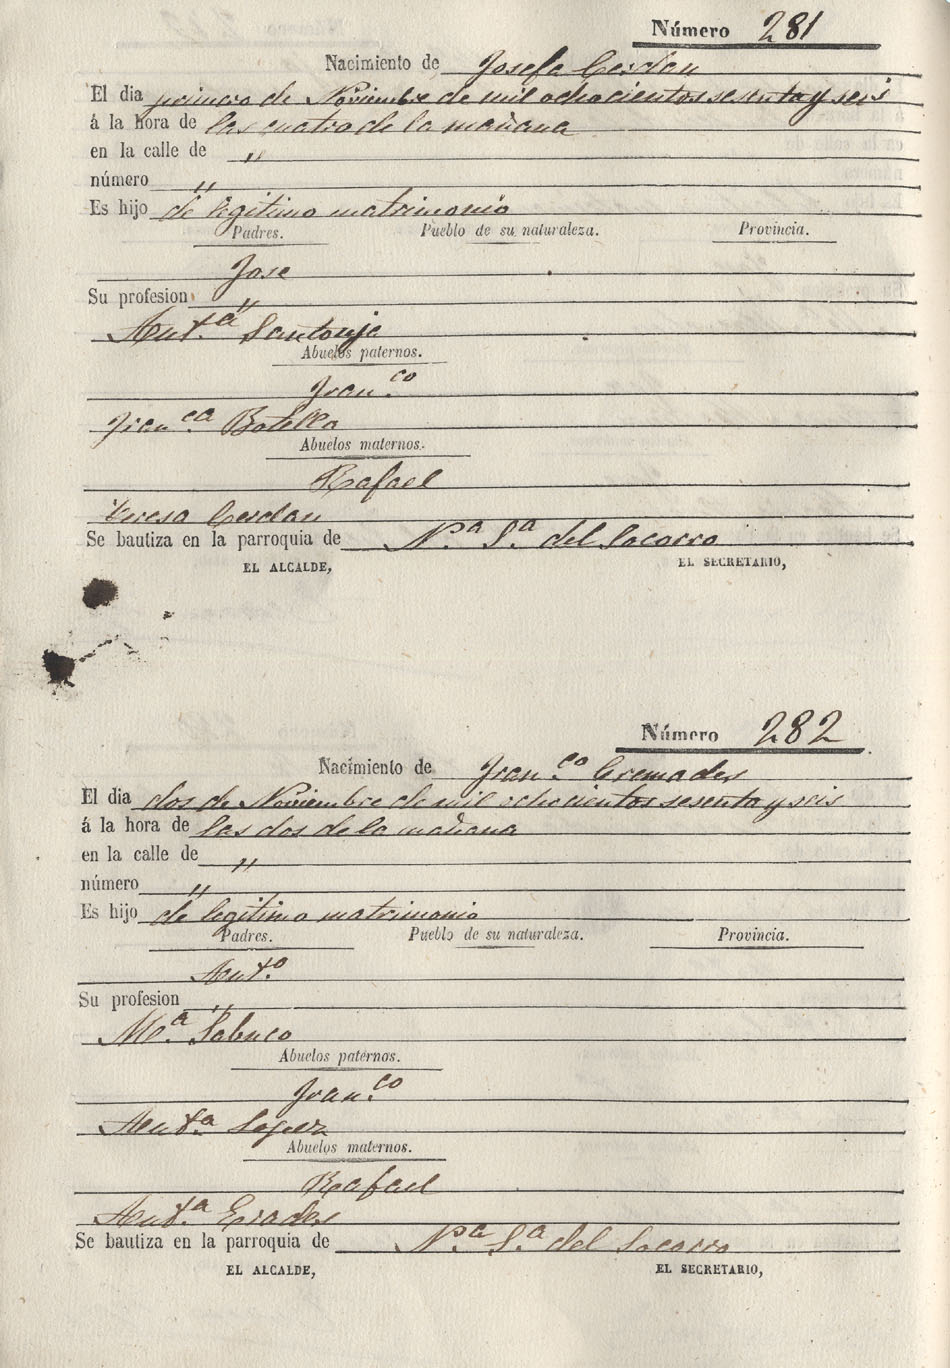 Número 281
Nacimiento de Josefa Cerdan
El dia primero de Noviembre de mil ochocientos sesenta y seis
á la hora de las cuatro de la mañana
en la calle de "
número "
Es hijo de legitimo matrimonio
Padres. Pueblo de su naturaleza. Provincia.
Jose
Su profesion "
Ant.ª Santonja
Abuelos paternos.
Fran.co
Fran.ca Botella
Abuelos maternos.
Rafael
Teresa Cerdan
Se bautiza en la parroquia de N.ª S.ª del Socorro
EL ALCALDE, EL SECRETARIO,
Número 282
Nacimiento de Fran.co Cremades
El dia dos de Noviembre de mil ochocientos sesenta y seis
á la hora de las dos de la mañana
en la calle de "
número "
Es hijo de legitimo matrimonio
Padres. Pueblo de su naturaleza. Provincia.
Ant.o
Su profesion "
M.ª Sabuco
Abuelos paternos.
Fran.co
Ant.ª
Abuelos maternos.
Rafael
Ant.ª
Se bautiza en la parroquia de N.ª S.ª del Socorro
EL ALCALDE, EL SECRETARIO,